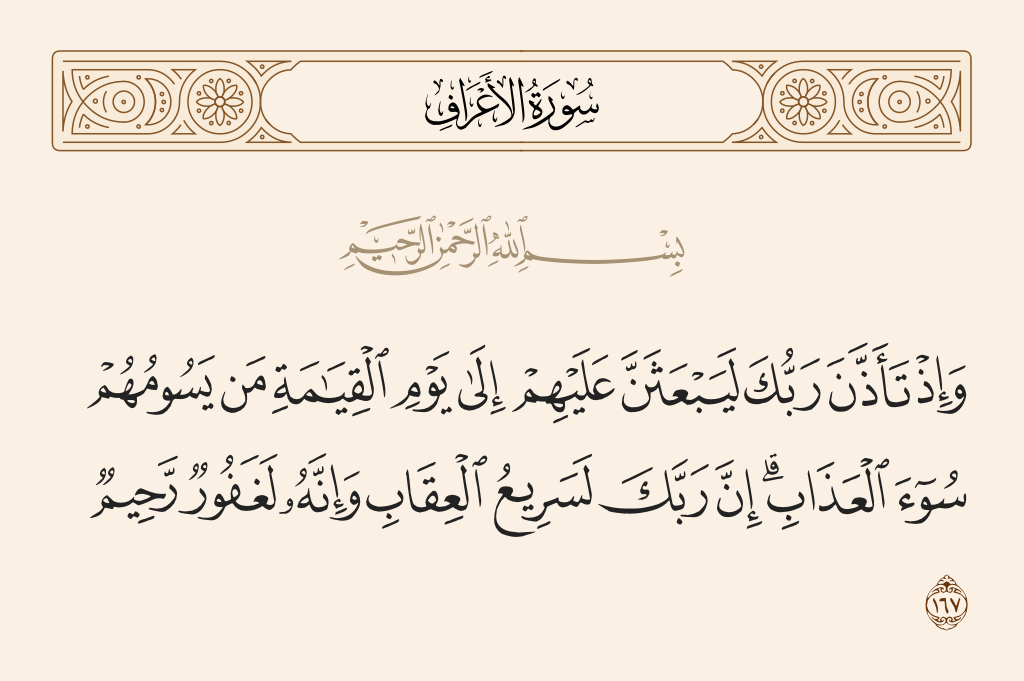 سُورَةُ الأَعْرَافِ
بِسْمِ ٱللَّهِ ٱلرَّحْمَٰنِ ٱلرَّحِيمِ
وَإِذْ تَأَذَّنَ رَبُّكَ لَيَبْعَثَنَّ عَلَيْهِمْ إِلَىٰ يَوْمِ ٱلْقِيَٰمَةِ مَن يَسُومُهُمْ
سُوٓءَ ٱلْعَذَابِ ۗ إِنَّ رَبَّكَ لَسَرِيعُ ٱلْعِقَابِ وَإِنَّهُۥ لَغَفُورٌ رَّحِيمٌ
١٦٧